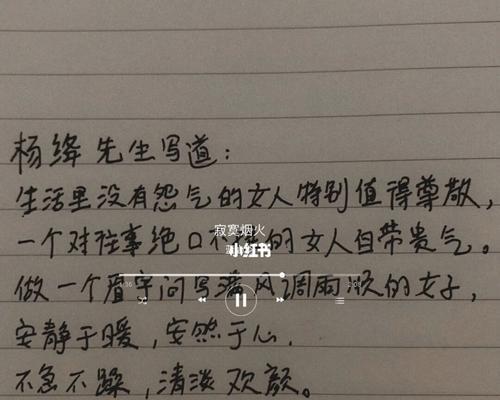 杨绛先生写道：
生活里没有怨气的女人特别值得尊敬，
一个对往事绝口不提的女人自带贵气。
寂寞烟火
小红书
做一个眉宇间写满风调雨顺的女子，
安静于暖，安然于心，
不急不躁，清淡欢颜。